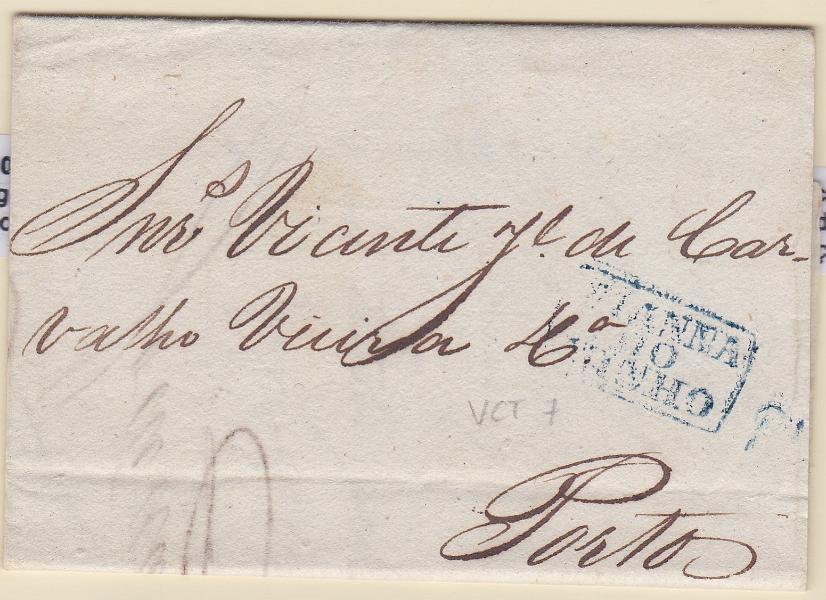 Snrs Vicente Jé. de Car-
valho Vieira & Ca
VIANNA
DO
MINHO
VCT 7
Porto